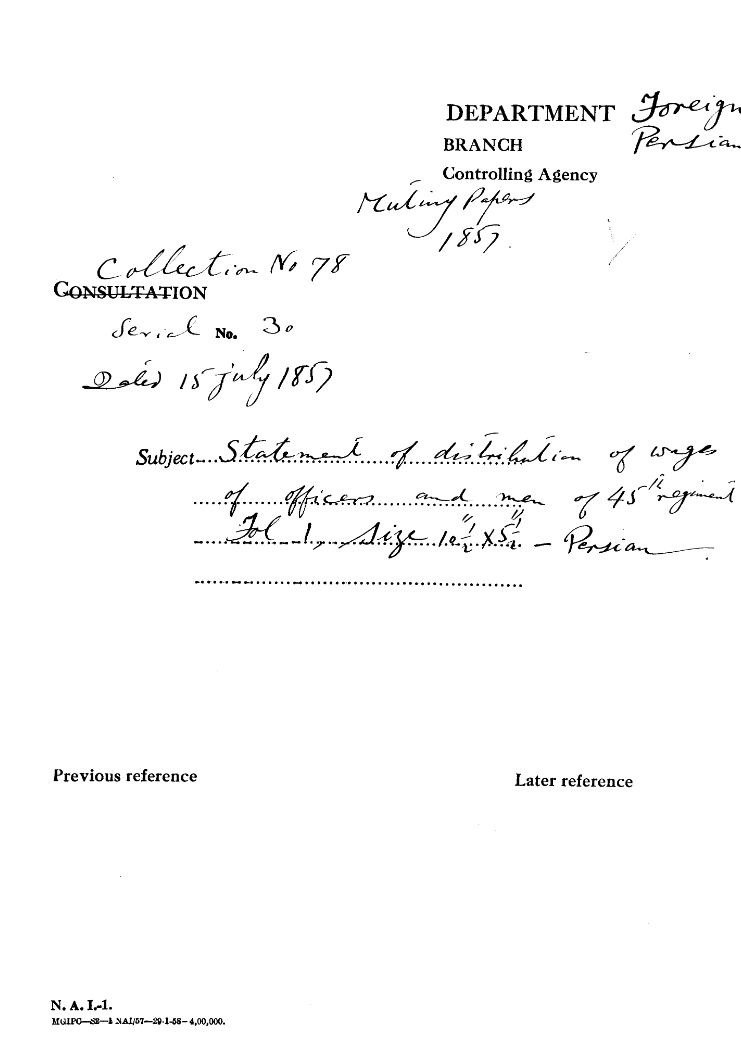 DEPARTMENT Foreign
BRANCH Persian
Controlling Agency
Mutiny Papers
1857.
Collection No 78
CONSULTATION
Serial No. 30
Dated 15 july 1857
Subject Statement of distribution of wages
of officers and men of 45th regiment
Fol 1, size 10½" X 5½" – Persian
Previous reference
Later reference
N. A. I.-1.
MGIPC—S2—1 NAI/57—29-1-58—4,00,000.